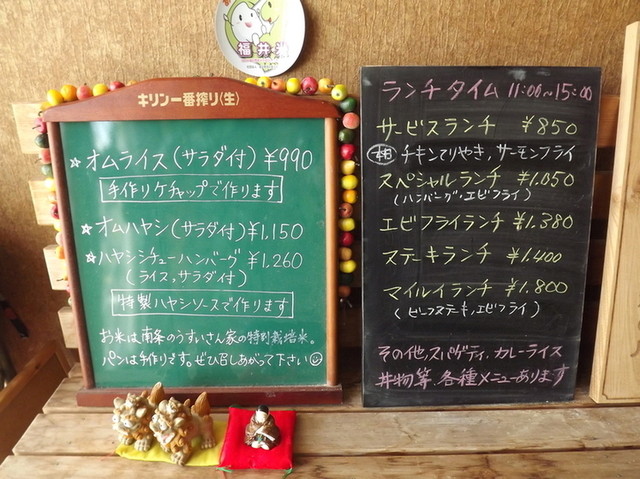 福井米
キリン一番搾り〈生〉
☆オムライス(サラダ付)¥990
手作りケチャップで作ります
☆オムハヤシ(サラダ付)¥1,150
☆ハヤシシチューハンバーグ ¥1,260
(ライス,サラダ付)
特製ハヤシソースで作ります
お米は、南条のうすいさん家の特別栽培米。
パンは手作りです。ぜひ召しあがって下さい
ランチタイム 11:00~15:00
サービスランチ ¥850
チキンてりやき,サーモンフライ
スペシャルランチ ¥1.050
(ハンバーグ,エビフライ)
エビフライランチ ¥1.380
ステーキランチ ¥1.400
マイルイランチ ¥1.800
(ビーフステーキ,エビフライ)
その他,スパゲティ,カレーライス
丼物等、各種メニューあります